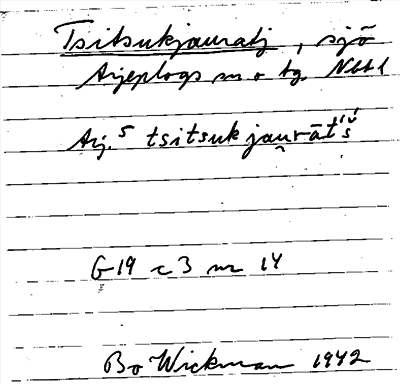 Tsitsukjauratj, sjö
Arjeplogs sn o tg. Nbtl
Arj. 5 tsitsuk jau̯rātˈśˈ
G 19 c 3 nr 14
Bo Wickman 1942